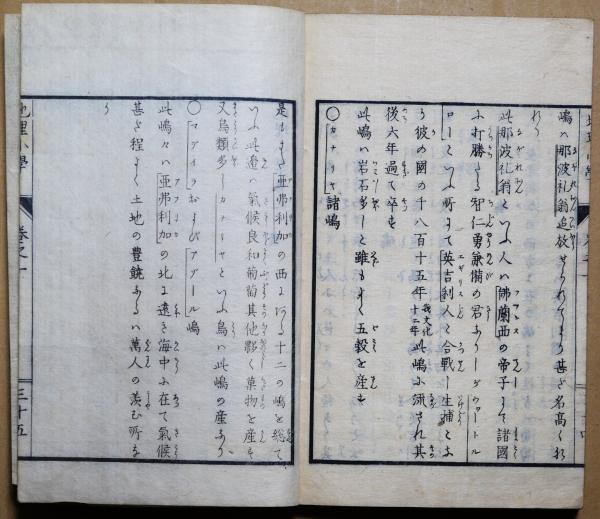 嶋ハ那波礼翁追放せられてより甚だ名高くなれり
此那波礼翁といふ人ハ佛蘭西の帝子にて諸國
に打勝たる智仁勇兼備の君なりしがウヲートル
ローといふ所にて英吉利人と合戦し生捕とな
り彼の國の千八百十五年我文化十二年此嶋に流され其
後六年過て卒す
此嶋ハ岩石多しと雖もよく五穀を産す
〇カナリヤ諸嶋
是もまた亜弗利加の西にある十二の嶋を総て
いふ此邊ハ氣候良和葡萄其他夥く菓物を産す
又鳥類多しカナリヤといふ鳥ハ此嶋の産なり
〇マデイラおよびアゾール嶋
此嶋々ハ亜弗利加の北に遠き海中に在て氣候
甚だ程よく土地の豊饒なるハ萬人の羨む所な
り
地理小學
巻之一
三十五